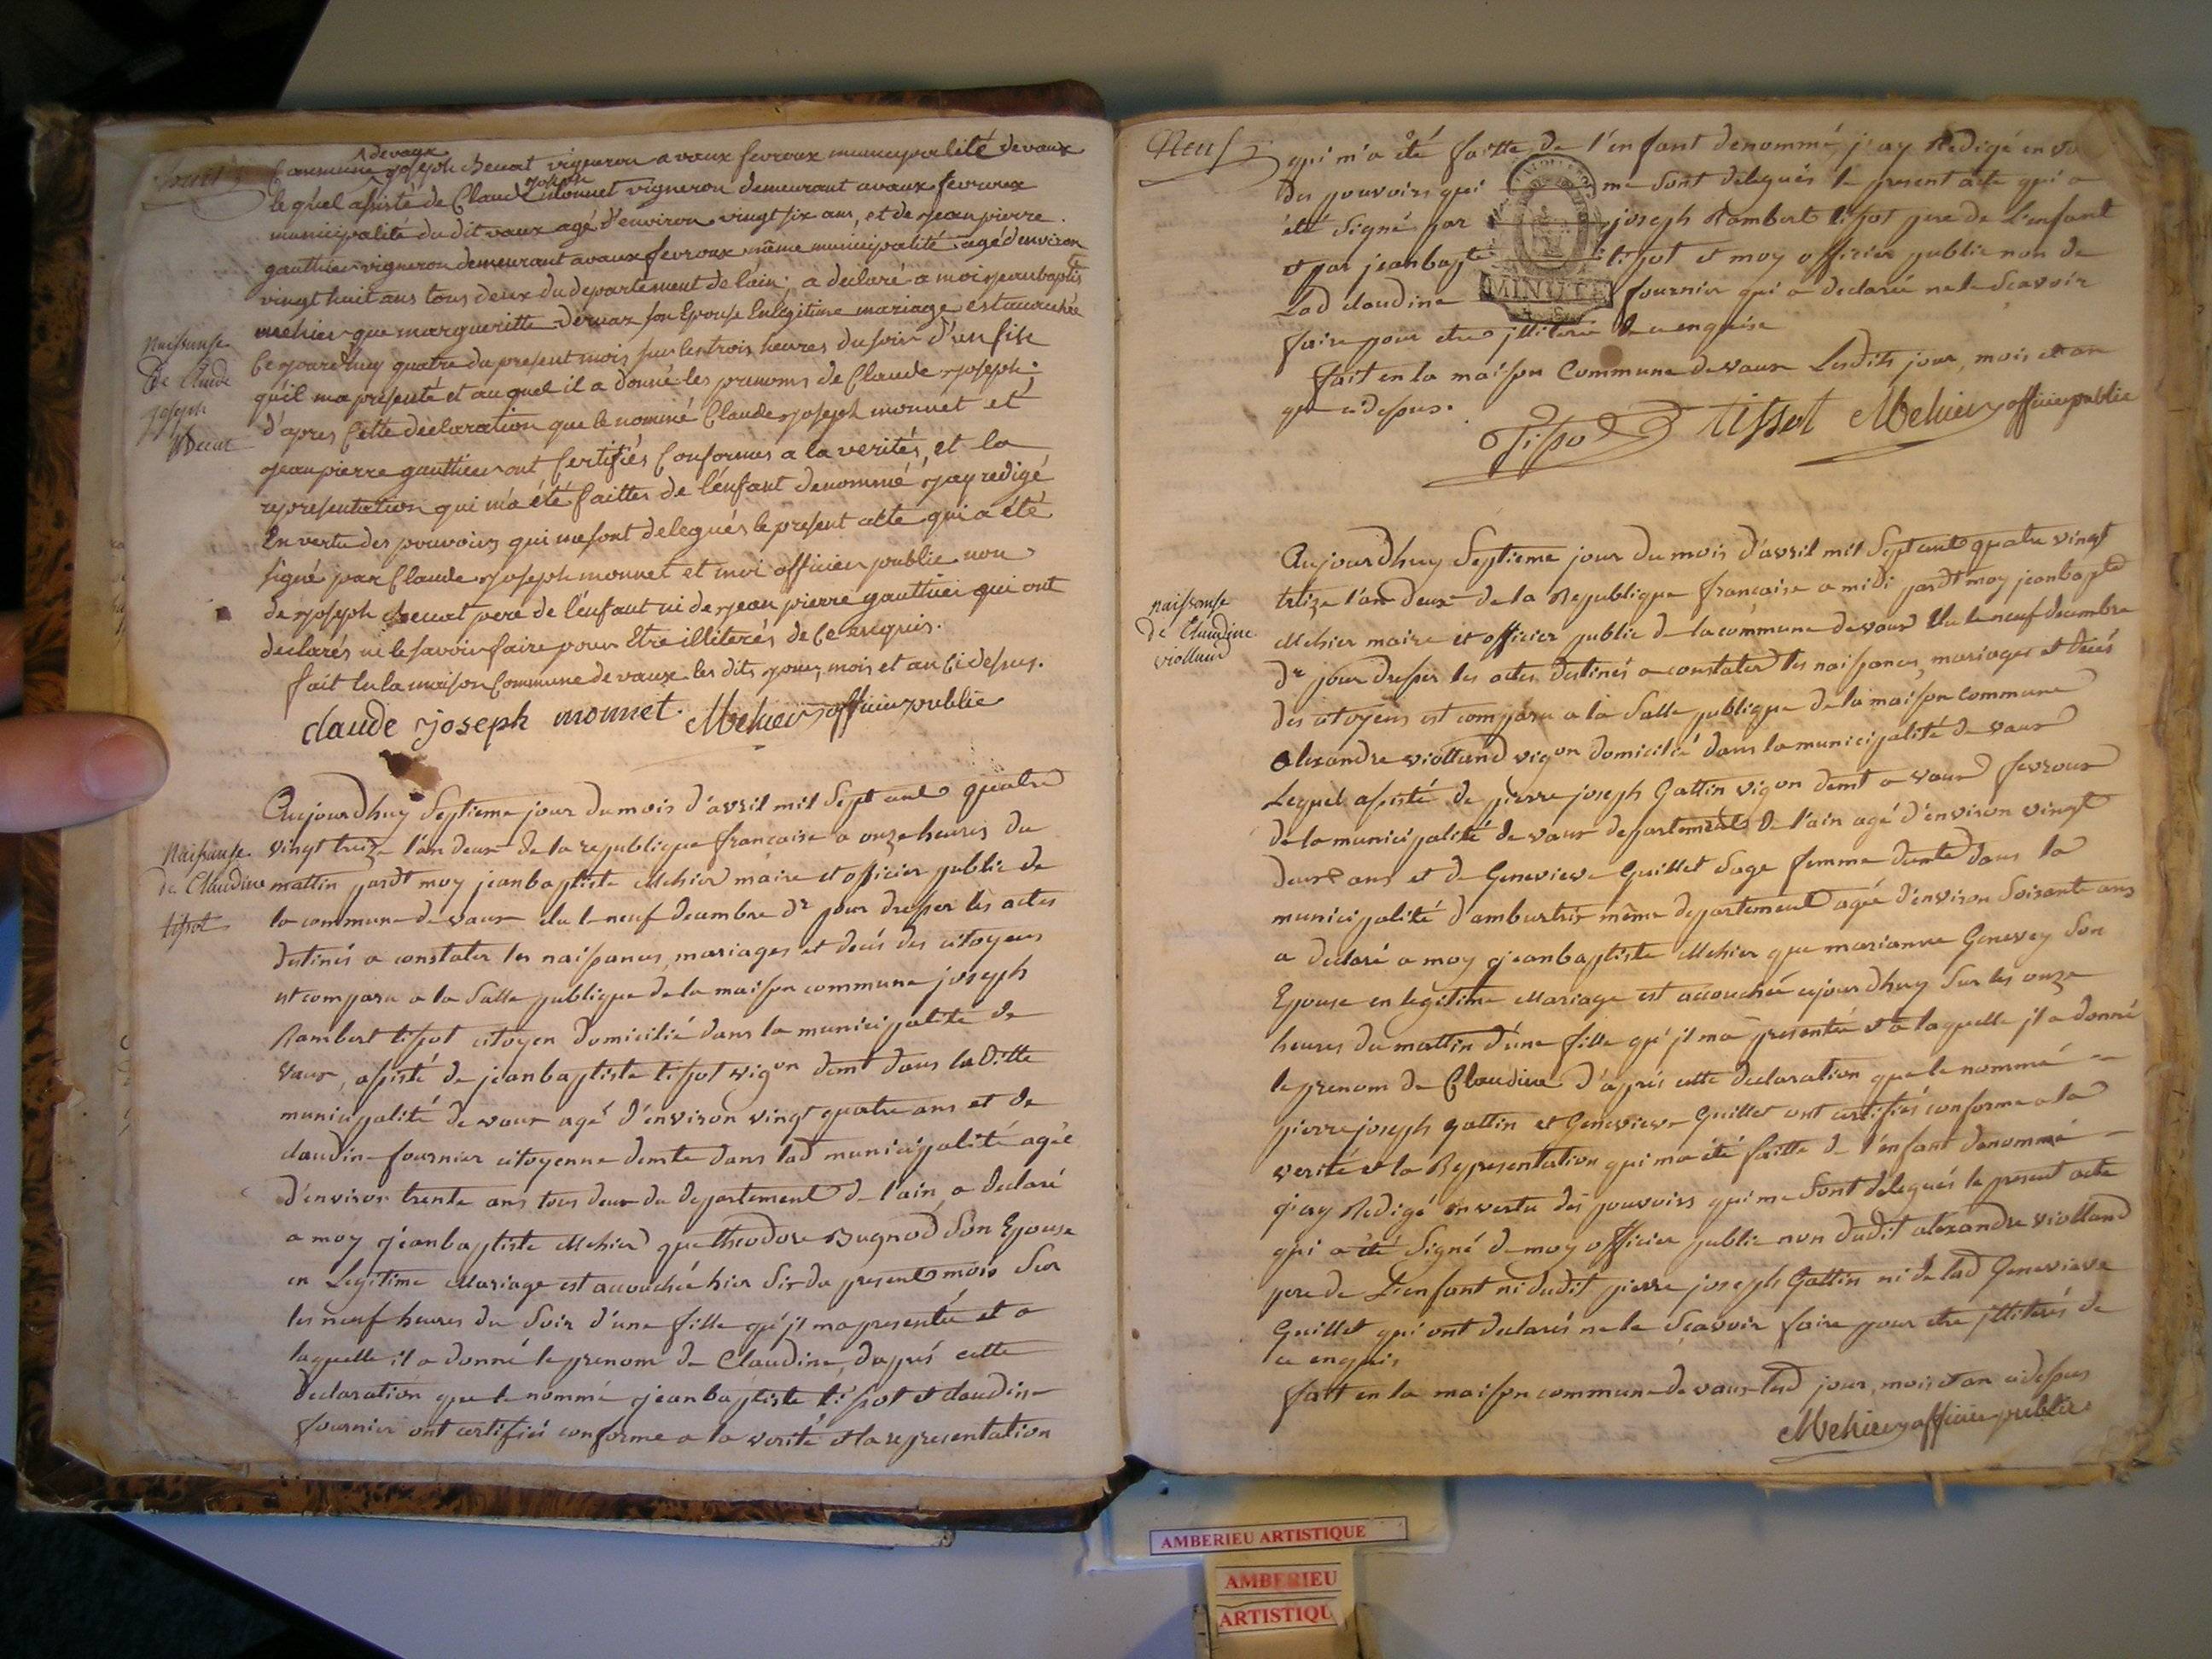 Commune de vaux joseph benat vigneron a vaux fevroux municipalité de vaux
lequel assisté de Claude joseph monnet vigneron demeurant a vaux fevroux
municipalité du dit vaux agé d'environ vingt six ans, et de jean pierre
gauthier vigneron demeurant a vaux fevroux même municipalité agé d'environ
vingt huit ans tous deux du departement de lain, a declaré a moi jean baptiste
mehier que margueritte dervaz son Epouse En legitime mariage est accouchée
Cejourdhuy quatre du present mois sur les trois heures du soir d'un fils
qu'il ma présenté et au quel il a donné les prenoms de Claude joseph.
d'apres Cette declaration que le nommé Claude joseph monnet et
jean pierre gauthier ont Certifiés Conformes a la verités, et la
representation qui m'a été faittes de l'enfant denommé, j'ay redigé
En vertu des pouvoirs qui me sont delegués le present acte qui a été
signé par Claude joseph monnet et moi officier public non
de joseph pere de l'enfant ni de jean pierre gauthier qui ont
declarés ne le savoir faire pour Etre illiterés de Ce enquis.
fait En la maison Commune de vaux les dits jour, mois et an Ci dessus.
claude joseph monnet. Mehier officier public
Naissanse
de Claude
joseph
Aujourdhuy Septieme jour du mois d'avril mil Sept cent quatre
vingt treize l'an deux de la republique française a onze heures du
mattin pardt moy jean baptiste Mehier maire et officier public de
la commune de vaux elu le neuf decembre dr pour dresser les actes
destinés a constater les naissances, mariages et decés des citoyens
est comparu a la Salle publique de la maison commune joseph
Rambert tissot citoyen domicilié dans la municipalité de
vaux, assisté de jean baptiste tissot vigon demt dans laditte
municipalité de vaux agé d'environ vingt quatre ans et de
claudine fournier citoyenne demte dans lad municipalité agée
d'environ trente ans tous deux du departement de l'ain, a declaré
a moy jean baptiste Mehier que theodore Bugnod Son Epouse
en Legitime Mariage est accouchée hier Six du present mois Sur
les neuf heures du Soir d'une fille qu'jl ma presentée et a
laquelle il a donné le prenom de Claudine, dapres cette
declaration que le nommé jean baptiste tissot et claudine
fournier ont certifiés conforme a la verité et la representation
Naissanse
de Claudine
tissot
Neuf
qui m'a été faitte de l'enfant denommé, j'ay Redigé en
des pouvoirs qui me Sont delegués le present acte qui a
été Signé par joseph Rambert tissot pere de L'enfant
et par jean bapte tissot et moy officier public non de
Lad claudine fournier qui a declaré ne le Scavoir
faire pour etre jlliterée de ce enquise
fait en la maison Commune de vaux Lesdits jour, mois et an
que cidessus.
MINUTE
Tissot tissot Mehier officier public
Aujourdhuy Septieme jour du mois d'avril mil Sept cent quatre vingt
treize l'an deux de la Republique française a midi pardt moy jean bapte
Mehier maire et officier public de la commune de vaux Elu le neuf decembre
dr pour dresser les actes destinés a constater les naissances, mariages et decés
des citoyens est comparu a la Salle publique de la maison commune
alexandre violland vigon domicilié dans la municipalité de vaux
Lequel assisté de pierre joseph Gattin vigon demt a vaux fevroux
de la municipalité de vaux departement de l'ain agé d'environ vingt
deux ans et de Genevieve Guillet Sage femme demte dans la
municipalité d'ambutrix même departement agée d'environ Soixante ans
a declaré a moy jean baptiste Mehier que marianne Genevey Son
Epouse en legitime Mariage est accouchée ajourdhuy Sur les onze
heures du mattin d'une fille qu'jl ma presentée et a laquelle jl a donné
le prenom de Claudine d'après cette declaration que le nommé
pierre joseph gattin et Genevieve Guillet ont certifiés conforme a la
verité et la Representation qui ma été faitte de l'enfant denommé
j'ay Redigé en vertu des pouvoirs qui me Sont delegués le present acte
qui a été Signé de moy officier public non dudit alexandre violland
pere de L'enfant ni dudit pierre joseph Gattin ni de lad Genevieve
Guillet qui ont declarés ne le Scavoir faire pour etre jlliterés de
ce enquis
fait en la maison commune de vaux lesd jour, mois et an cidessus
Mehier officier public
naissanse
de Claudine
violland
AMBERIEU ARTISTIQUE
AMBERIEU
ARTISTIQU